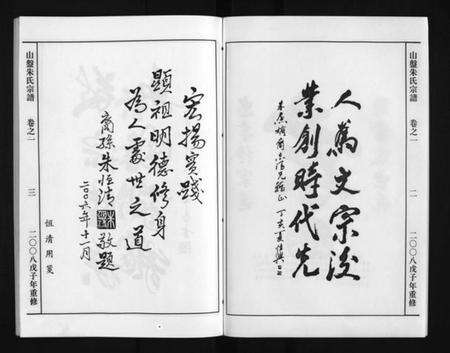 人为文宗後
業創時代先
丁亥
山盤朱氏宗譜
卷之二
二
二〇〇八戊子年重修
宏揚實踐
顯祖明德修身
為人處世之道
裔孫朱恒清
敬題
二〇〇六年十一月
恒清用箋
山盤朱氏宗譜
卷之二
三
二〇〇八戊子年重修